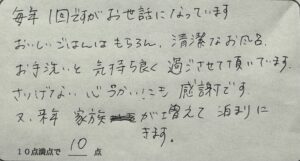 毎年1回ですがお世話になっています
おいしいごはんはもちろん、清潔なお風呂、
お手洗いと気持ち良く過ごさせて頂いています。
さりげない心づかいにも感謝です。
又、来年 家族が増えて泊まりに
きます。
10点満点で 10 点